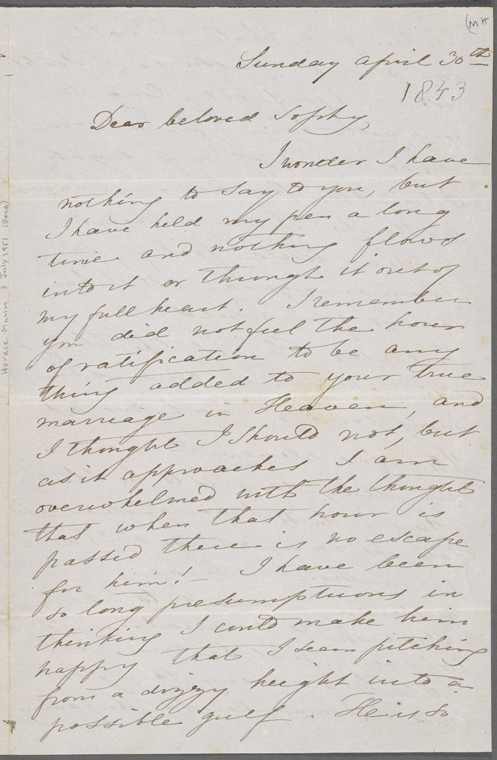 (MH
Sunday April 30th
1843
Dear beloved Sophy,
I wonder I have
nothing to say to you, but
I have held my pen a long
time and nothing flows
into it or through it out of
my full heart. I remember
you did not feel the hour
of ratification to be any
thing added to your true
marriage in Heaven, and
I thought I should not, but
as it approaches I am
overwhelmed with the thought
that when that hour is
passed there is no escape
for him! I have been
so long presumptuous in
thinking I could make him
happy that I seem pitching
from a dizzy height into a
possible gulf. He is so
Horace Mann 3 July 1951